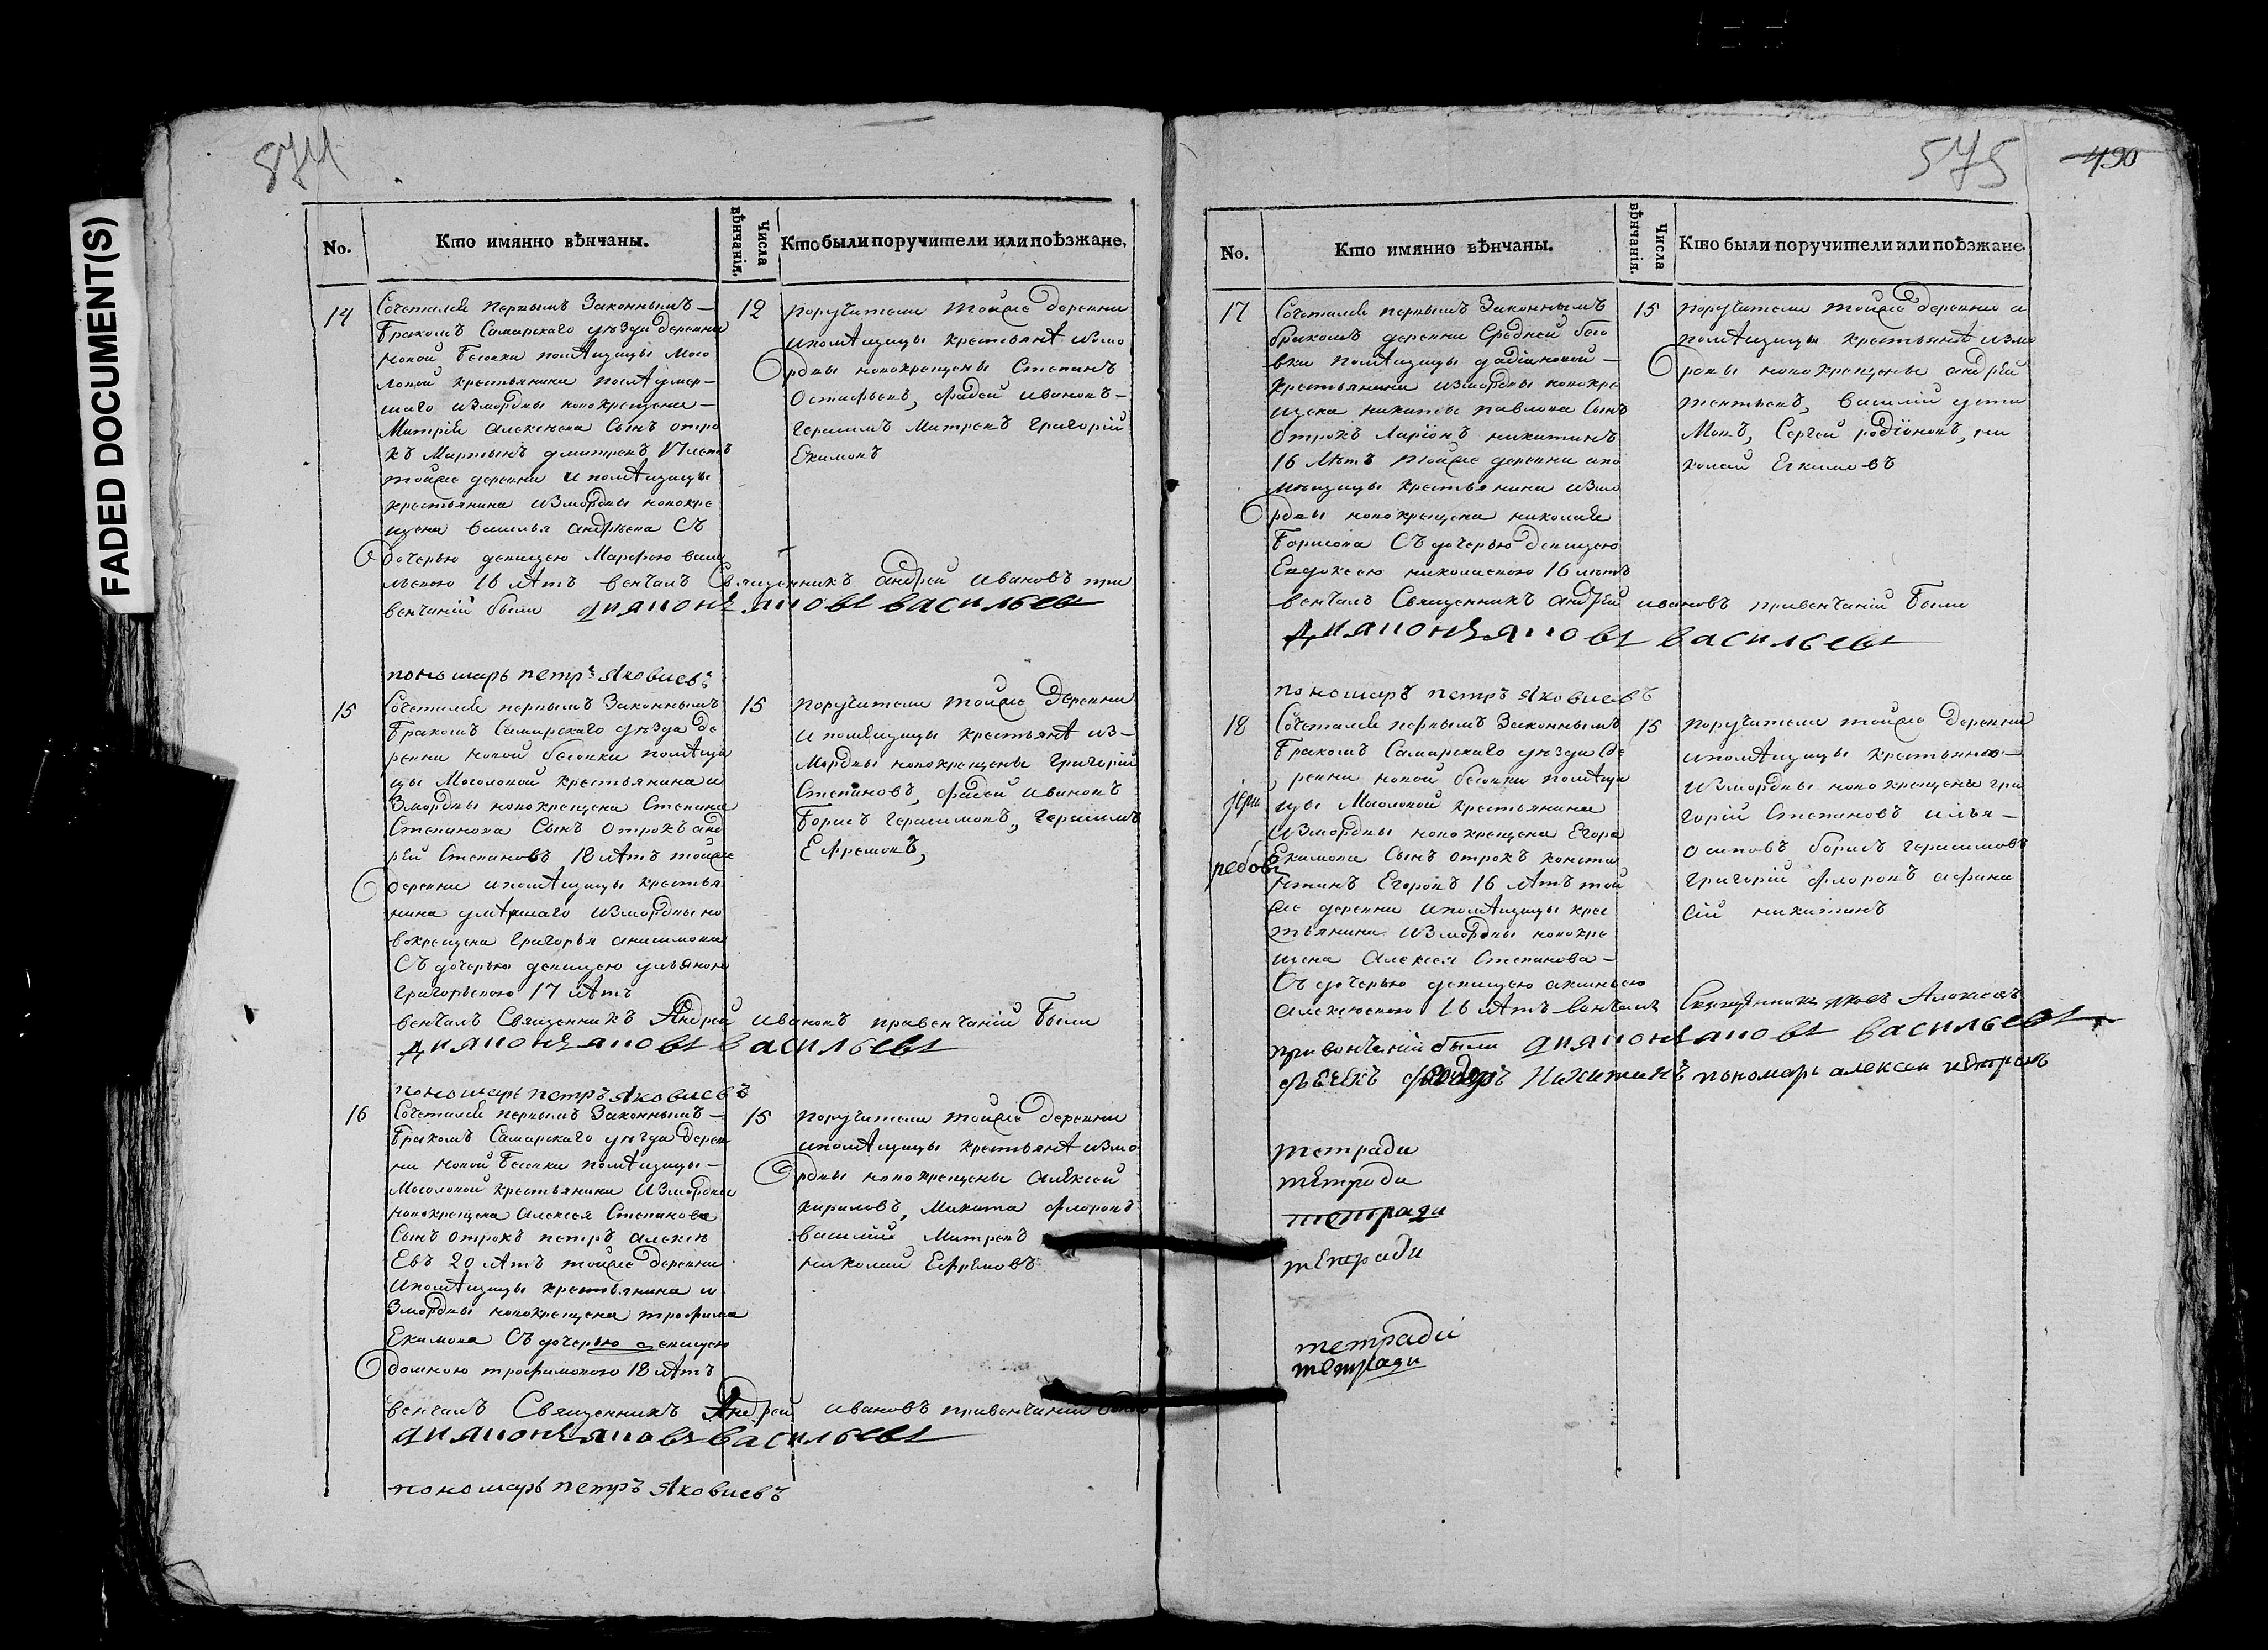 FADED DOCUMENT(S)
874
No.
Кто имянно вѣнчаны.
Числа вѣнчанія.
Кто были поручители или поѣзжане.
14
Сочетался первымъ Законнымъ
бракомъ Самарскаго уѣзда деревни
новой бесовки помѣщицы Мосо
ловой крестьянина послѣ умер
шаго измордвы новокрещена
Митрія алексеева Сынъ отро
къ Мартынъ дмитревъ 17 летъ
тойже деревни и помѣщицы
крестьянина измордвы новокре
щена василья андреева Съ
дочерью девицею Марфою васи
льевою 16 лѣтъ венчалъ Священникъ андрей ивановъ при
венчаніи были дияпонъ яповъ васильевъ
пономарь петръ Яковлевъ
12
поручители тойже деревни
и помѣщицы крестьянѣ измо
рдвы новокрещены Степанъ
Остафьевъ, фадей ивановъ
герасимъ Митревъ григорій
Екимовъ
15
Сочетался первымъ Законнымъ
бракомъ Самарскаго уѣзда де
ревни новой бесовки помѣщи
цы Мосоловой крестьянина и
Змордвы новокрещена Степана
Степанова Сынъ отрокъ анд
рей Степановъ 18 лѣтъ тойже
деревни и помѣщицы крестья
нина умершаго измордвы но
вокрещена григорья анисимова
Съ дочерью девицею ульяною
григорьевою 17 лѣтъ
венчалъ Священникъ Андрей ивановъ привенчаніи были
дияпонъ яповъ васильевъ
пономарь петръ Яковлевъ
15
поручители тойже деревни
и помѣщицы крестьянѣ из
Мордвы новокрещены григорій
Степановъ, фадей ивановъ
борисъ герасимовъ, герасимъ
Ефремовъ,
16
Сочетался первымъ Законнымъ
бракомъ Самарскаго уѣзда дерев
ни новой бесовки помѣщицы
Мосоловой крестьянина измордвы
новокрещена алексея Степанова
Сынъ отрокъ петръ алексе
Евъ 20 лѣтъ тойже деревни
и помѣщицы крестьянина и
Змордвы новокрещена трофима
Екимова Съ дочерью девицею
домною трофимовою 18 лѣтъ
венчалъ Священникъ Андрей ивановъ привенчаніи были
дияпонъ яповъ васильевъ
пономарь петръ Яковлевъ
15
поручители тойже деревни
и помѣщицы крестьянѣ измо
рдвы новокрещены алѣксей
кириловъ, Микита флоровъ
василій Митревъ
николай Ефремовъ
575
490
No.
Кто имянно вѣнчаны.
Числа вѣнчанія.
Кто были поручители или поѣзжане.
17
Сочетался первымъ Законнымъ
бракомъ деревни Средней бесо
вки помѣщицы дадіановой
крестьянина измордвы новокре
щена никиты павлова Сынъ
отрокъ Ларіонъ никитинъ
16 лѣтъ тойже деревни и по
мещицы крестьянина измо
рдвы новокрещена николая
борисова Съ дочерью девицею
Евдокеею николаевою 16 летъ
венчалъ Священникъ андрей ивановъ привенчаніи были
дияпонъ яповъ васильевъ
пономаръ петръ Яковлевъ
15
поручители тойже деревни и
помѣщицы крестьянѣ измо
рдвы новокрещены андрей
терентьевъ, василій усти
Мовъ, Сергей родіоновъ, ни
колай Екимовъ
18
Сочетался первымъ Законнымъ
бракомъ Самарскаго уѣзда де
ревни новой бесовки помѣщи
цы Мосоловой крестьянина
измордвы новокрещена Егора
Екимова Сынъ отрокъ конста
нтинъ Егоровъ 16 лѣтъ той
же деревни и помѣщицы крес
тьянина измордвы новокре
щена Алексея Степанова
Съ дочерью девицею акилиною
алексеевою 16 лѣтъ венчалъ Священникъ яковъ Алексеевъ
привенчаніи были дияпонъ яповъ васильевъ
федоръ Никитинъ пономарь алексеи петровъ
15
поручители тойже деревни
и помѣщицы крестьяне
измордвы новокрещены гри
горій Степановъ илья
осиповъ борисъ герасимовъ
григорій флоровъ афана
сій никитинъ
тетради
тетради
тетради
тетради
тетради
тетради